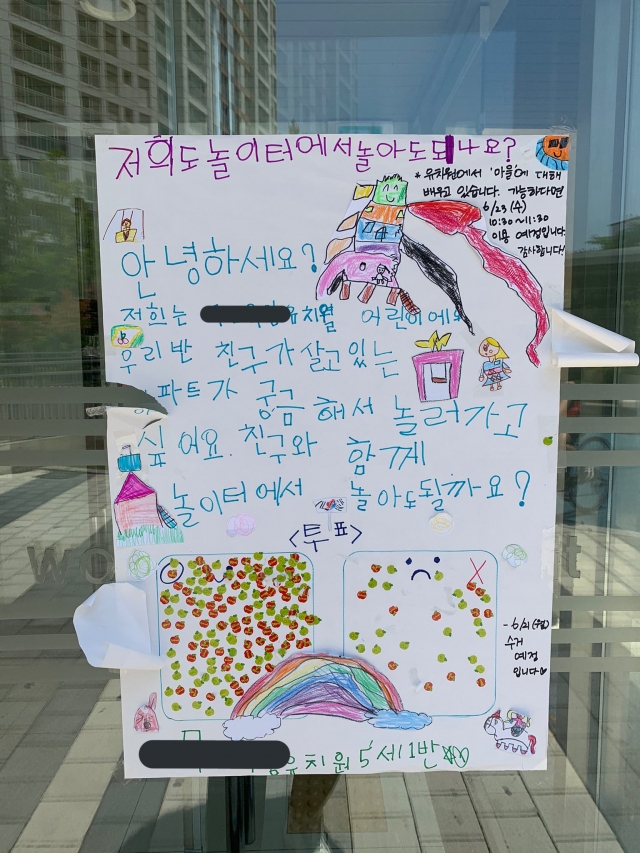 저희도 놀이터에서 놀아도 되나요?
* 유치원에서 '마을'에 대해
배우고 있습니다. 가능하다면
6/23 (수)
10:30~11:30
이용 예정입니다
감사합니다!
안녕하세요?
저희는 유치원 어린이에요
우리반 친구가 살고 있는
아파트가 궁금해서 놀러가고
싶어요. 친구와 함께
놀이터에서 놀아도될까요?
<투표>
- 6/21 (월)
수거
예정
입니다♡
유치원 5세 1반